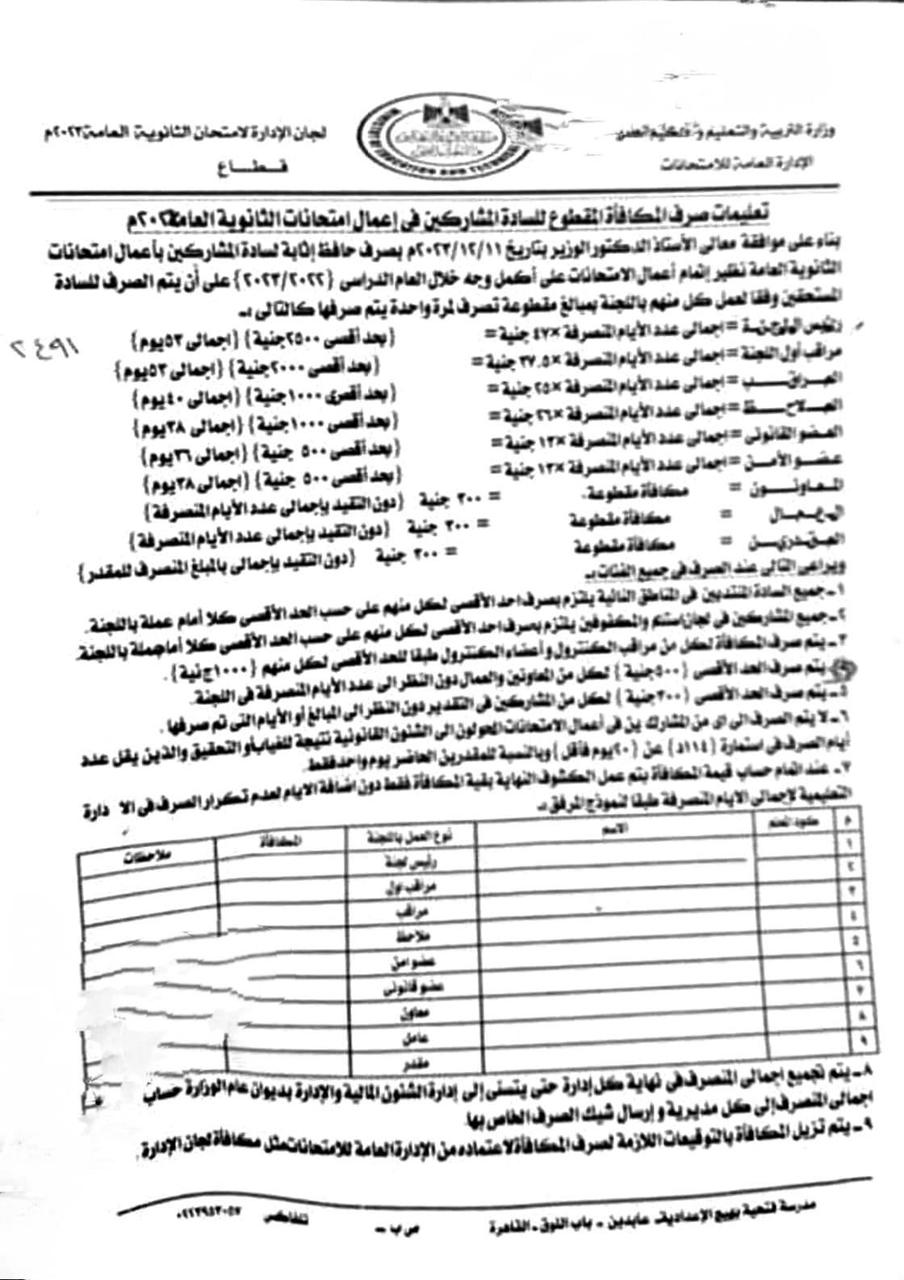 وزارة التربية والتعليم والتعليم الفنى
لجان الإدارة لامتحان الثانوية العامة ٢٠٢٣م
الإدارة العامة للامتحانات
قطاع
تعليمات صرف المكافأة المقطوع للسادة المشاركين فى إعمال امتحانات الثانوية العامة ٢٠٢٣م
بناء على موافقة معالى الأستاذ الدكتور الوزير بتاريخ ٢٠٢٣/١٢/١١م بصرف حافظ إثابة لسادة المشاركين بأعمال امتحانات
الثانوية العامة نظير إتمام أعمال الامتحانات على أكمل وجه خلال العام الدراسى {٢٠٢٣/٢٠٢٢} على أن يتم الصرف للسادة
المستحقين وفقا لعمل كل منهم باللجنة بمبالغ مقطوعة تصرف لمرة واحدة يتم صرفها كالتالى :ـ
رئيس اللجنة = اجمالى عدد الأيام المنصرفة ×٤٧ جنية = {بحد أقصى ٢٥٠٠جنية} {اجمالى ٥٣يوم}
٢٤٩١
مراقب أول اللجنة = اجمالى عدد الأيام المنصرفة ×٣٧.٥ جنية = {بحد أقصى ٢٠٠٠ جنية} {اجمالى ٥٣يوم}
المراقب = اجمالى عدد الأيام المنصرفة ×٢٥ جنية = {بحد أقصى ١٠٠٠ جنية} {اجمالى ٤٠يوم}
الملاحظ = اجمالى عدد الأيام المنصرفة ×٢٦ جنية = {بحد أقصى ١٠٠٠ جنية} {اجمالى ٣٨يوم}
العضو القانونى = اجمالى عدد الأيام المنصرفة ×١٣ جنية = {بحد أقصى ٥٠٠ جنية} {اجمالى ٣٦يوم}
عضو الأمن = اجمالى عدد الأيام المنصرفة ×١٣ جنية = {بحد أقصى ٥٠٠ جنية} {اجمالى ٣٨يوم}
المعاونون = مكافأة مقطوعة = ٣٠٠ جنية {دون التقيد بإجمالى عدد الأيام المنصرفة}
العمال = مكافأة مقطوعة = ٣٠٠ جنية {دون التقيد بإجمالى عدد الأيام المنصرفة}
المقدرين = مكافأة مقطوعة = ٣٠٠ جنية {دون التقيد بإجمالى بالمبلغ المنصرف للمقدر}
ويراعى التالى عند الصرف فى جميع الفئات :ـ
١ـ جميع السادة المنتدبين فى المناطق النائية يلتزم بصرف احد الأقسى لكل منهم على حسب الحد الأقسى كلا أمام عملة باللجنة.
٢ـ جميع المشاركين فى لجان استكم والمكفوفين يلتزم بصرف احد الأقسى لكل منهم على حسب الحد الأقسى كلا أمام عملة باللجنة.
٣ـ يتم صرف المكافأة لكل من مراقب الكنترول و أعضاء الكنترول طبقا للحد الأقسى لكل منهم {١٠٠٠جنية}.
٤ـ يتم صرف الحد الأقسى {٥٠٠جنية} لكل من المعاونين والعمال دون النظر الى عدد الأيام المنصرفة فى اللجنة.
٥ـ يتم صرف الحد الأقسى {٣٠٠جنية} لكل من المشاركين فى التقدير دون النظر الى المبالغ أو الأيام التى تم صرفها.
٦ـ لا يتم الصرف الى اى من المشارك ين فى أعمال الامتحانات المحولون الى الشئون القانونية نتيجة للغياب أو التحقيق والذين يقل عدد
أيام الصرف فى استمارة {١١٤د} عن {٢٠يوم فأقل} وبالنسبة للمقدرين الحاضر يوم واحد فقط.
٧ـ عند اتمام حساب قيمة المكافأة يتم عمل الكشوف النهاية بقية المكافأة فقط دون اضافة الايام لعدم تكرار الصرف فى الا دارة
التعليمية لإجمالى الايام المنصرفة طبقا لنموذج المرفق :ـ
م كود المعلم الاسم نوع العمل باللجنة المكافأة ملاحظات
١ رئيس لجنة
٢ مراقب اول
٣ مراقب
٤ ملاحظ
٥ عضو امن
٦ عضو قانونى
٧ معاون
٨ عامل
٩ مقدر
٨ـ يتم تجميع اجمالى المنصرف فى نهاية كل إدارة حتى يتسنى إلى إدارة الشئون المالية والإدارة بديوان عام الوزارة حساب
اجمالى المنصرف إلى كل مديرية و إرسال شيك الصرف الخاص بها.
٩ـ يتم تزيل المكافأة بالتوقيعات اللازمة لصرف المكافأة لاعتماده من الإدارة العامة للامتحانات مثل مكافأة لجان الإدارة.
مدرسة فتحية بهيج الإعدادية ـ عابدين ـ باب اللوق ـ القاهرة ص ب ـ تلفاكس ٠٢٢٣٩٥٣٠٥٧